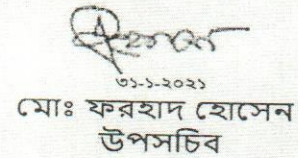 ৩১-১-২০২১
মোঃ ফরহাদ হোসেন
উপসচিব